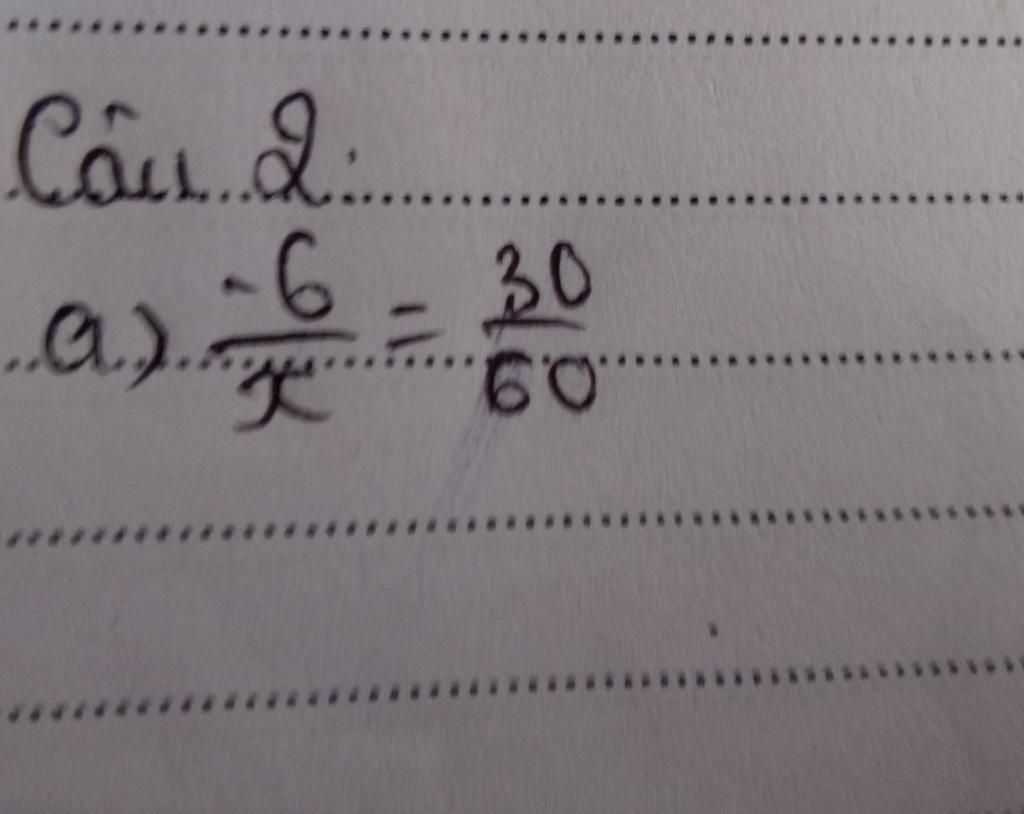 Câu 2:
a) -6/x = 30/60